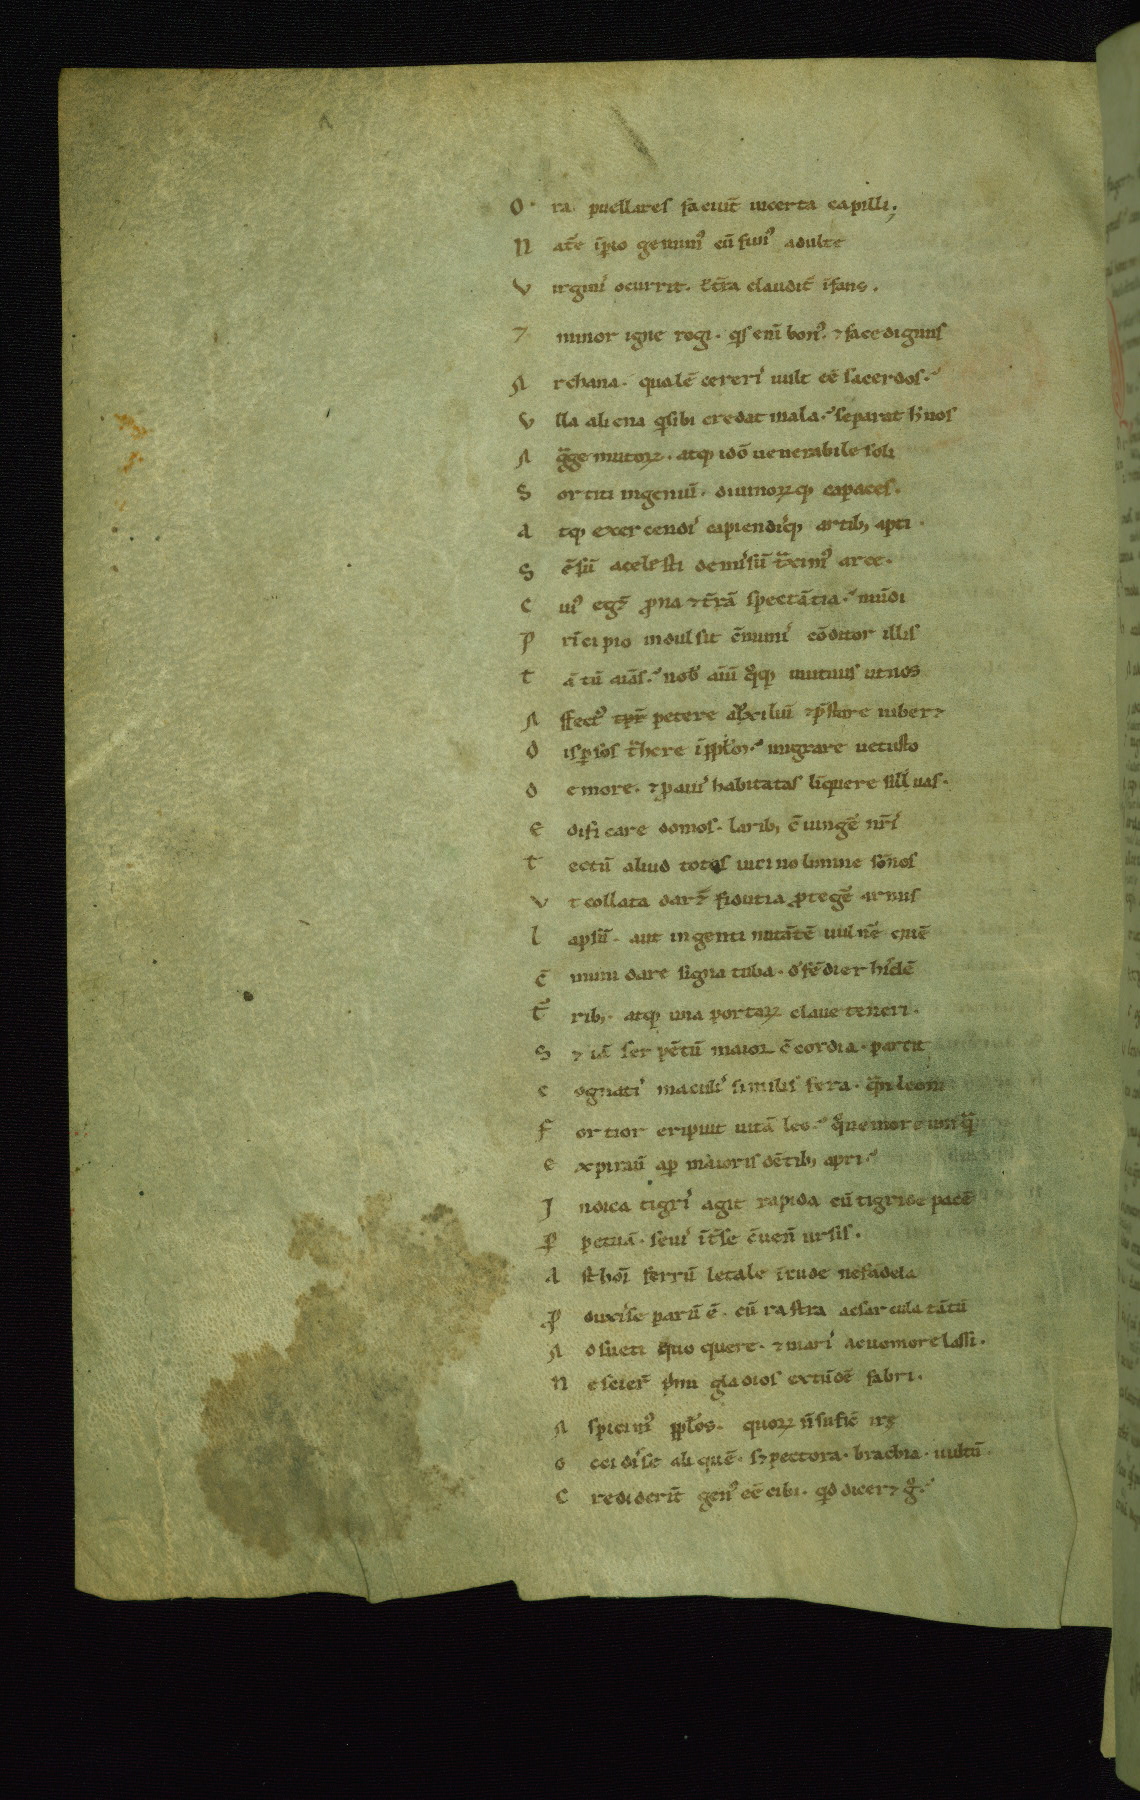 O ra puellares faciūt incerta capilli;
N atѐ īpio gemim᷒ cū fun᷒ adulte
V irginiſ ocurrit. ł tr̄a clauditͬ īfans.
7 minor igne rogi. qſ eni bon᷒. ⁊ face dignus
A rchana. qualē cereriſ uult eē sacerdos.
V lla aliena q̄ſibi credat mala. separat h̓ nos
A g̃ge mutoꝝ. atqꝫ idō uenerabile soli
S ortiti ingeniū. diuinoꝝqꝫ capaces.
A tqꝫ exercendiſ capiendiſqꝫ artibꝫ apti.
S ēsū a celeſti demiſsū tͣximꝰ arce.
C uiꝰ egēt ꝓna ⁊ tr̄ā spectātia. mūdi
P rīcipio indulsit cōmuniſ cōditor illis
T ātū aīās. nobiſ aīū qͦqꝫ mutuus ut nos
A ffectꝰ petere auxiliū ⁊ p̄ſtare iuber⁊
D iſꝑsos tͣhere ī ppl̓oſ. migrare uetuſto
D e more. ⁊ ꝓauiſ habitatas līquere siluas.
E dificare domos. laribꝫ cōiungē nr̄iſ
T ectū aliud totos uicino limine sōnos
V t collata dar⁊ fidutia ꝓtegē armis
L apsū. aut ingenti nutātē uulnē ciuē
Cō muni dare signa tuba. defēdier hiſdē
T̄ ribꝫ. atqꝫ una portaꝝ claue teneri.
S ⁊ iā serpētū maior cōcordia. parcit
C ognatiſ maculiſ similis fera. qͣn leoni
F ortior eripuit uitā leo. qͦ nemore unqͣ
E xpirauī apꝰ maioris dētibꝫ apri.
I ndica tigriſ agit rapida cū tigride pacē
P̄ petuā. seuiſ īt̄ se cōuēit ursis.
A ſt hoī ferrū letale īcude nefāda
P̄ duxiſse parū ē. cū raſtra ac sarcula tātū
A dſueti quoquere. ⁊ mariſ ac uomere laſſi.
N eſcierī̄t pmi gladios extūdē fabri.
A spicimꝰ ppl̓os. quoꝝ ñ sufic̄ irę
O ccidiſse aliquē. sꝫ pectora. brachia. uultū.
C rediderīt genꝰ eē cibi. qd̄ dicer⁊ gͦ.